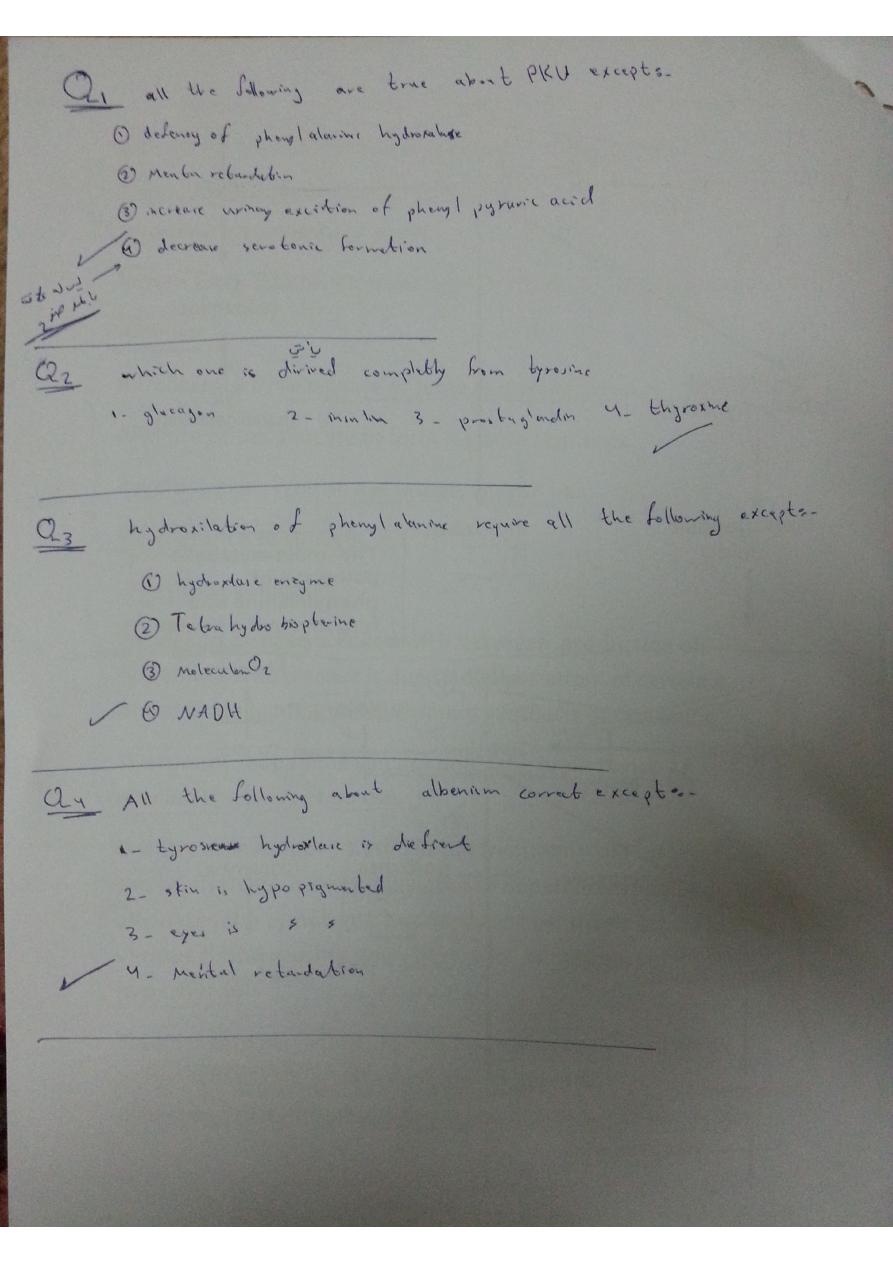 Q1 all the following are true about PKU excepts-
① defency of phenylalanine hydroxalase
② Mental retardation
③ increase urinary excition of phenyl pyruvic acid
④ decrease serotonic formation
Q2 which one is dirived completly from tyrosine
1- glucagon 2- insulin 3- prostuglandin 4- thyroxine
Q3 hydroxilation of phenylalanine require all the following excepts-
① hydroxlase enzyme
② Tetra hydro biopterine
③ Molecular O2
④ NADH
Q4 All the following about albenism correct except:-
1- tyrosine hydroxlase is defient
2- skin is hypo pigmented
3- eyes is
4- Mental retardation